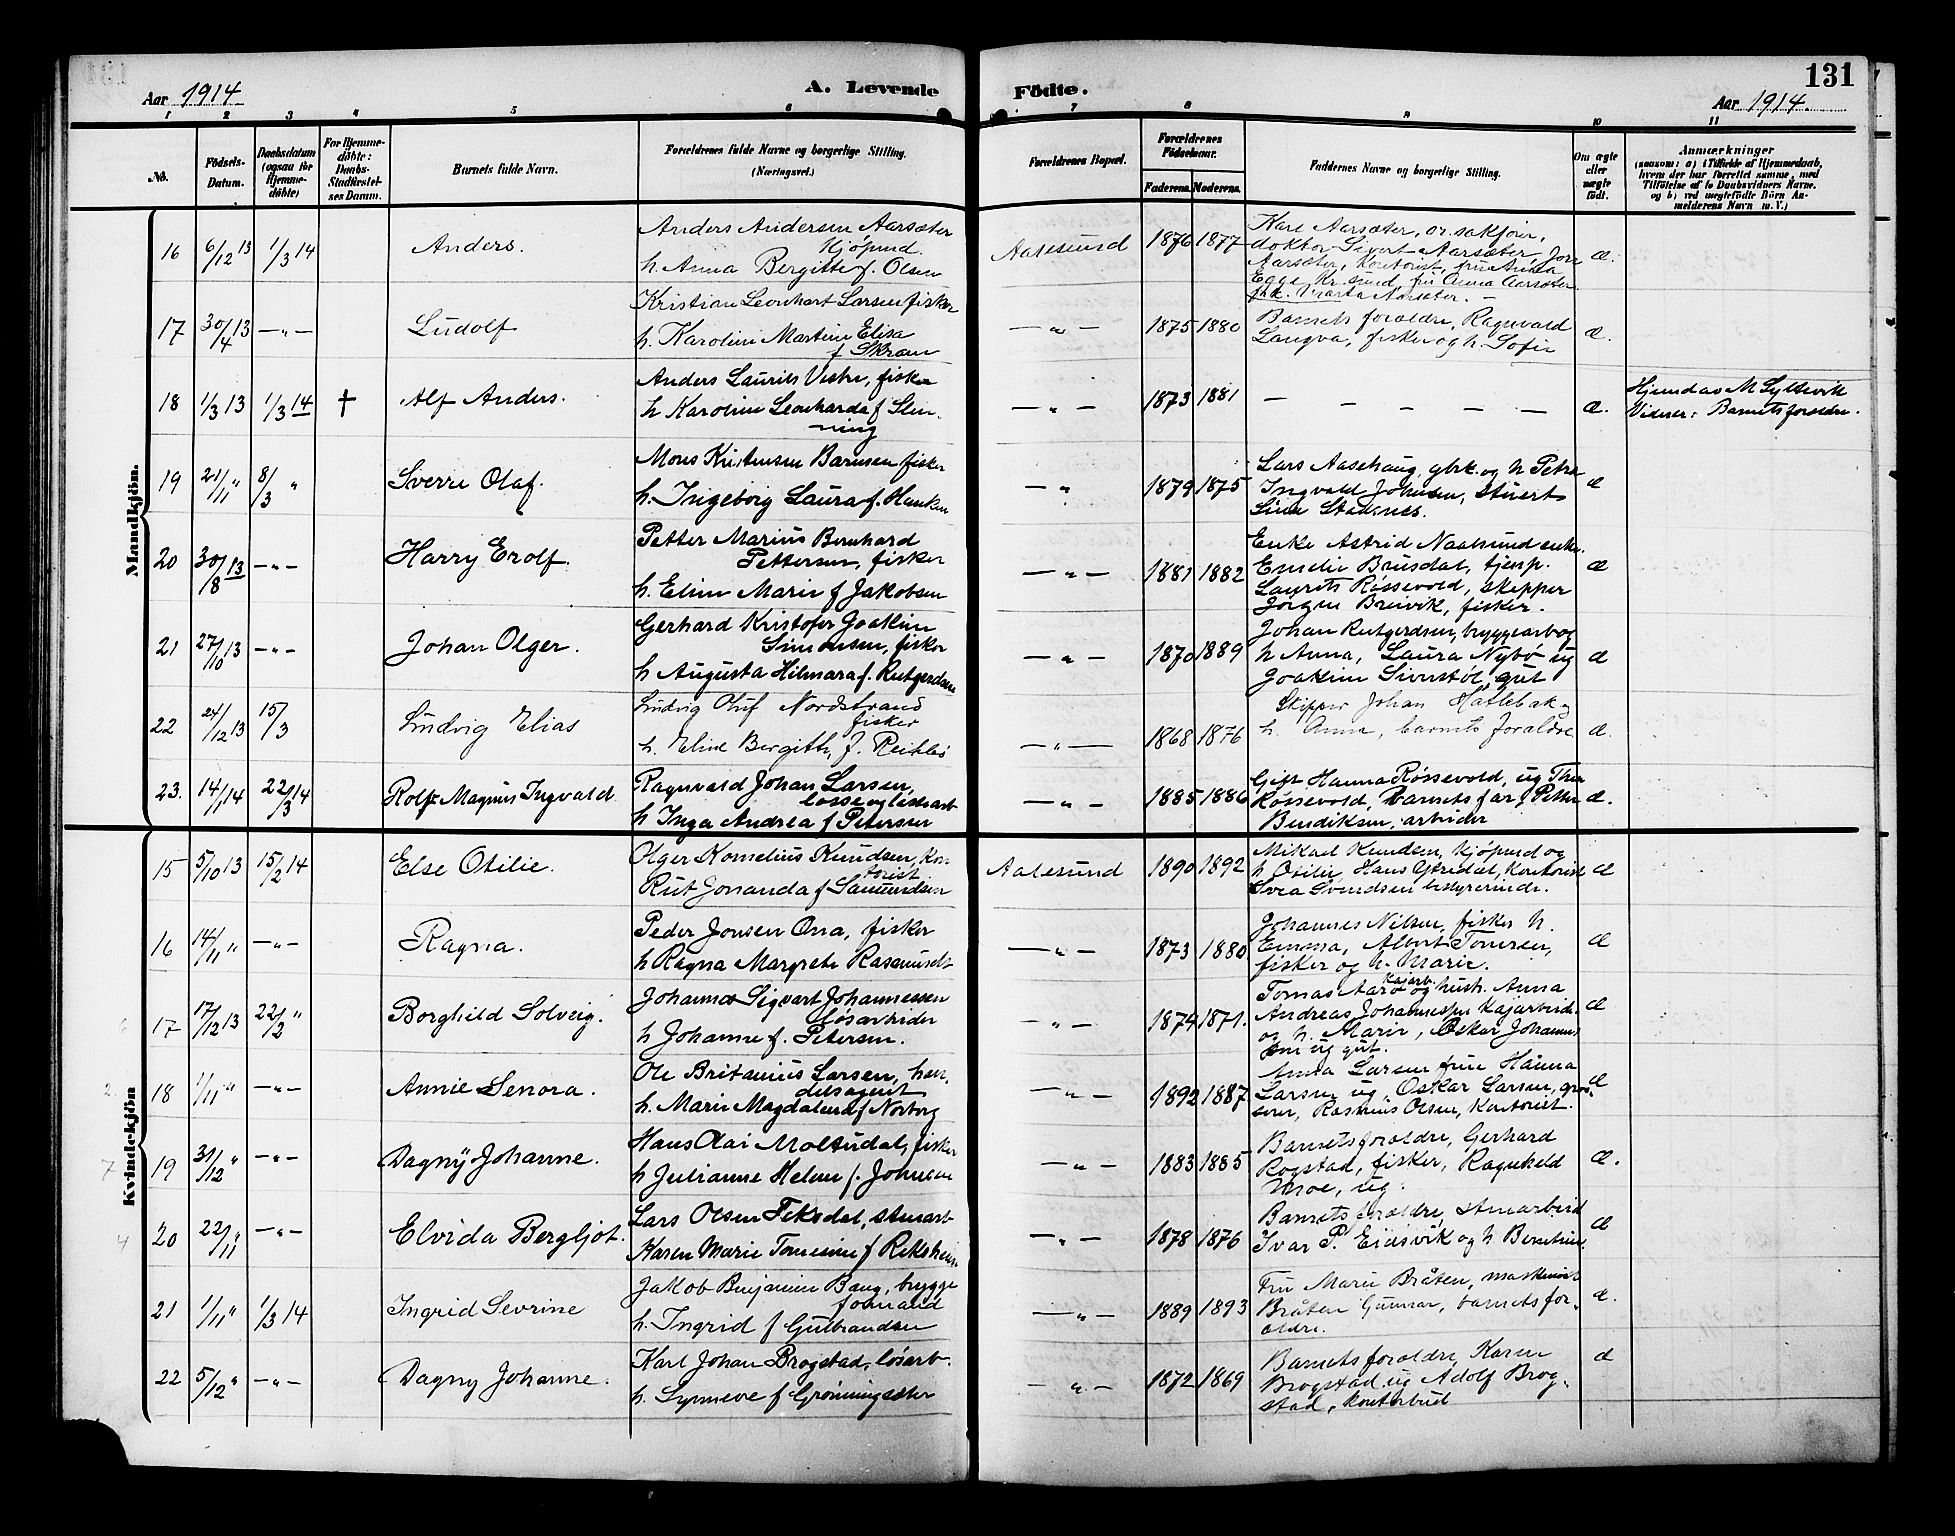 131
Aar 1914
A. Levende
Födte.
Aar 1914.
1 2 3 4 5 6 7 8 9 10 11
No.
Födsels-
Datum.
Daabsdatum
(ogsaa for
Hjemme-
döbte)
For Hjemme-
döbte:
Daabs-
Stadfæstel-
ses Datum.
Barnets fulde Navn.
Forældrenes fulde Navne og borgerlige Stilling.
(Næringsvei.)
Forældrenes Bopæl.
Forældrenes
Födselsaar.
Faderens. Moderens.
Faddernes Navne og borgerlige Stilling.
Om ægte
eller
uægte
födt.
Anmærkninger
(saasom: a) i Tilfælde af Hjemmedaab,
hvem der har forrettet samme, med
Tilföielse af to Daabsvidners Navne,
og b) ved uægtefödte Börn An-
melderens Navn m. V.)
Mandkjön.
16 6/12 13 1/3 14 Anders.
Anders Andersen Aarsæter
Kjøpmd.
h. Anna Bergitte f. Olsen
Aalesund 1876 1877
Kare Aarsæter, or. sakfører,
doktor Sivert Aarsæter, Jorn
Aarsæter, Kontorist, fru Anna
Egge Kr.sund, fru Anna Aarsæter
frk. Marta Aarsæter. —
æ.
17 30/4 13 — " — Ludolf
Kristian Leonhart Larsen fisker
h. Karoline Martine Elisa
f Skram
— " — 1875 1880
Barnets foraldre, Ragnvald
Langva, fisker og h. Sofie
æ.
18 1/3 13 1/3 14 † Alf Anders.
Anders Laurits Vestre, fisker
h Karoline Leonharda f Slin-
ning
— " — 1873 1881 — — — — — æ.
Hjemd av M Syltevik
Vidner: Barnets foraldre.
19 21/11 " 8/3 " Sverre Olaf.
Mons Kristensen Barmen fisker
h. Ingeborg Laura f. Hanken
— " 1879 1875
Lars Aasehaug gbrk. og h Petra
Ingvald Johnsen, stuert
Sina Stadsnes.
æ
20 30/8 13 — " — Harry Erolf.
Petter Marius Bernhard
Pettersen, fisker
h. Eline Marie f Jakobsen
— " — 1881 1882
Enke Astrid Naalsund enke.
Emelie Brusdal, tjenp.
Laurits Røssevold, skipper
Jørgen Breivik, fisker.
æ
21 27/10 13 — " — Johan Olger.
Gerhard Kristofer Joakim
Simonsen, fisker
h Augusta Hilmara f. Rutgerdsen
— " — 1870 1889
Johan Rutgerdsen, bryggearb og
h Anna, Laura Nybø ug
Joakim Sivestøl, gut
æ
22 24/12 13 15/3 Ludvig Elias
Ludvig Oluf Nordstrand
fisker
h. Eline Bergithe, f.
— " — 1868 1876
Skipper Johan Hatlebak og
h. Anna, barnets foraldre
æ.
23. 14/1 14 22/3 14 Rolf Magnus Ingvald
Ragnvald Johan Larsen,
losse og lastearb
h Inga Andrea f Petersen
— " — 1885 1886
Gift Hanna Røssevold, ug Thea
Røssevold, barnets far, Petter
Bendiksen, arbeider
æ.
Kvindekjön
15 5/10 13 15/2 14 Else Otilie.
Olger Kornelius Knudsen, Kon
torist
Rut Jonanda f Samuelsen
Aalesund 1890 1892
Mikael Knudsen, kjøpmd og
h Otilie, Hans Ytredal, Kontorist
Svea Svendsen bestyrerinde.
æ
16 14/11 " — " — Ragna.
Peder Jonsen Ona, fisker
h Ragna Margrete Rasmusdt
— " — 1873 1880
Johannes Nilsen, fisker h.
Emma, Albert Tomersen,
fisker og h. Marie.
æ
17 17/12 13 22/2 " Borghild Solveig.
Johannes Sigvart Johannessen
løsarbeider
h Johanne f. Petersen.
— " — 1874 1871.
Tomas Aarø Kajarb. og hust. Anna
Andreas Johannessen Kajarbeid.
og h. Marie, Oskar Johannes
sen ug gut.
æ
18 1/11 " — " — Annie Lenora.
Ole Britanius Larsen, han-
delsagent
h. Marie Magdalena f Norborg
— " — 1892 1887.
Anna Larsen frue Hanna
Larsen ug, Oskar Larsen, gros-
serer, Rasmus Olsen, Kontorist.
æ
7 19 31/12 " — " — Dagny Johanne.
Hans Olai Moltudal, fisker
h Julianne Helene f. Johnsen
— " — 1883 1885
Barnets foraldre, Gerhard
Rogstad, fisker, Ragnheld
Moe, ug.
æ.
4 20 22/11 " — " — Elvida Bergljot.
Lars Olsen Fiksdal, stenarb
Karen Marie Tomesine f Reksheim
— " — 1878 1876
Barnets foraldre, stenarbeid
Ivar P. Eidsvik og h. Berntine.
æ
21 1/11 " 1/3 14 Ingrid Sevrine
Jakob Benjamin Bang, brygge
formand
h. Ingrid f Gulbrandsen
— " — 1889 1893
Fru Marie Bråten, maskinist
Bråten Gunnar, barnets for-
ældre.
æ.
22 5/12 " — " — Dagny Johanne.
Karl Johan Brogstad, løsarb.
h. Synneve f Grønningsæter
— " — 1872 1869
Barnets foraldre, Karen
Brogstad ug Adolf Brog-
stad, kontorbud
æ